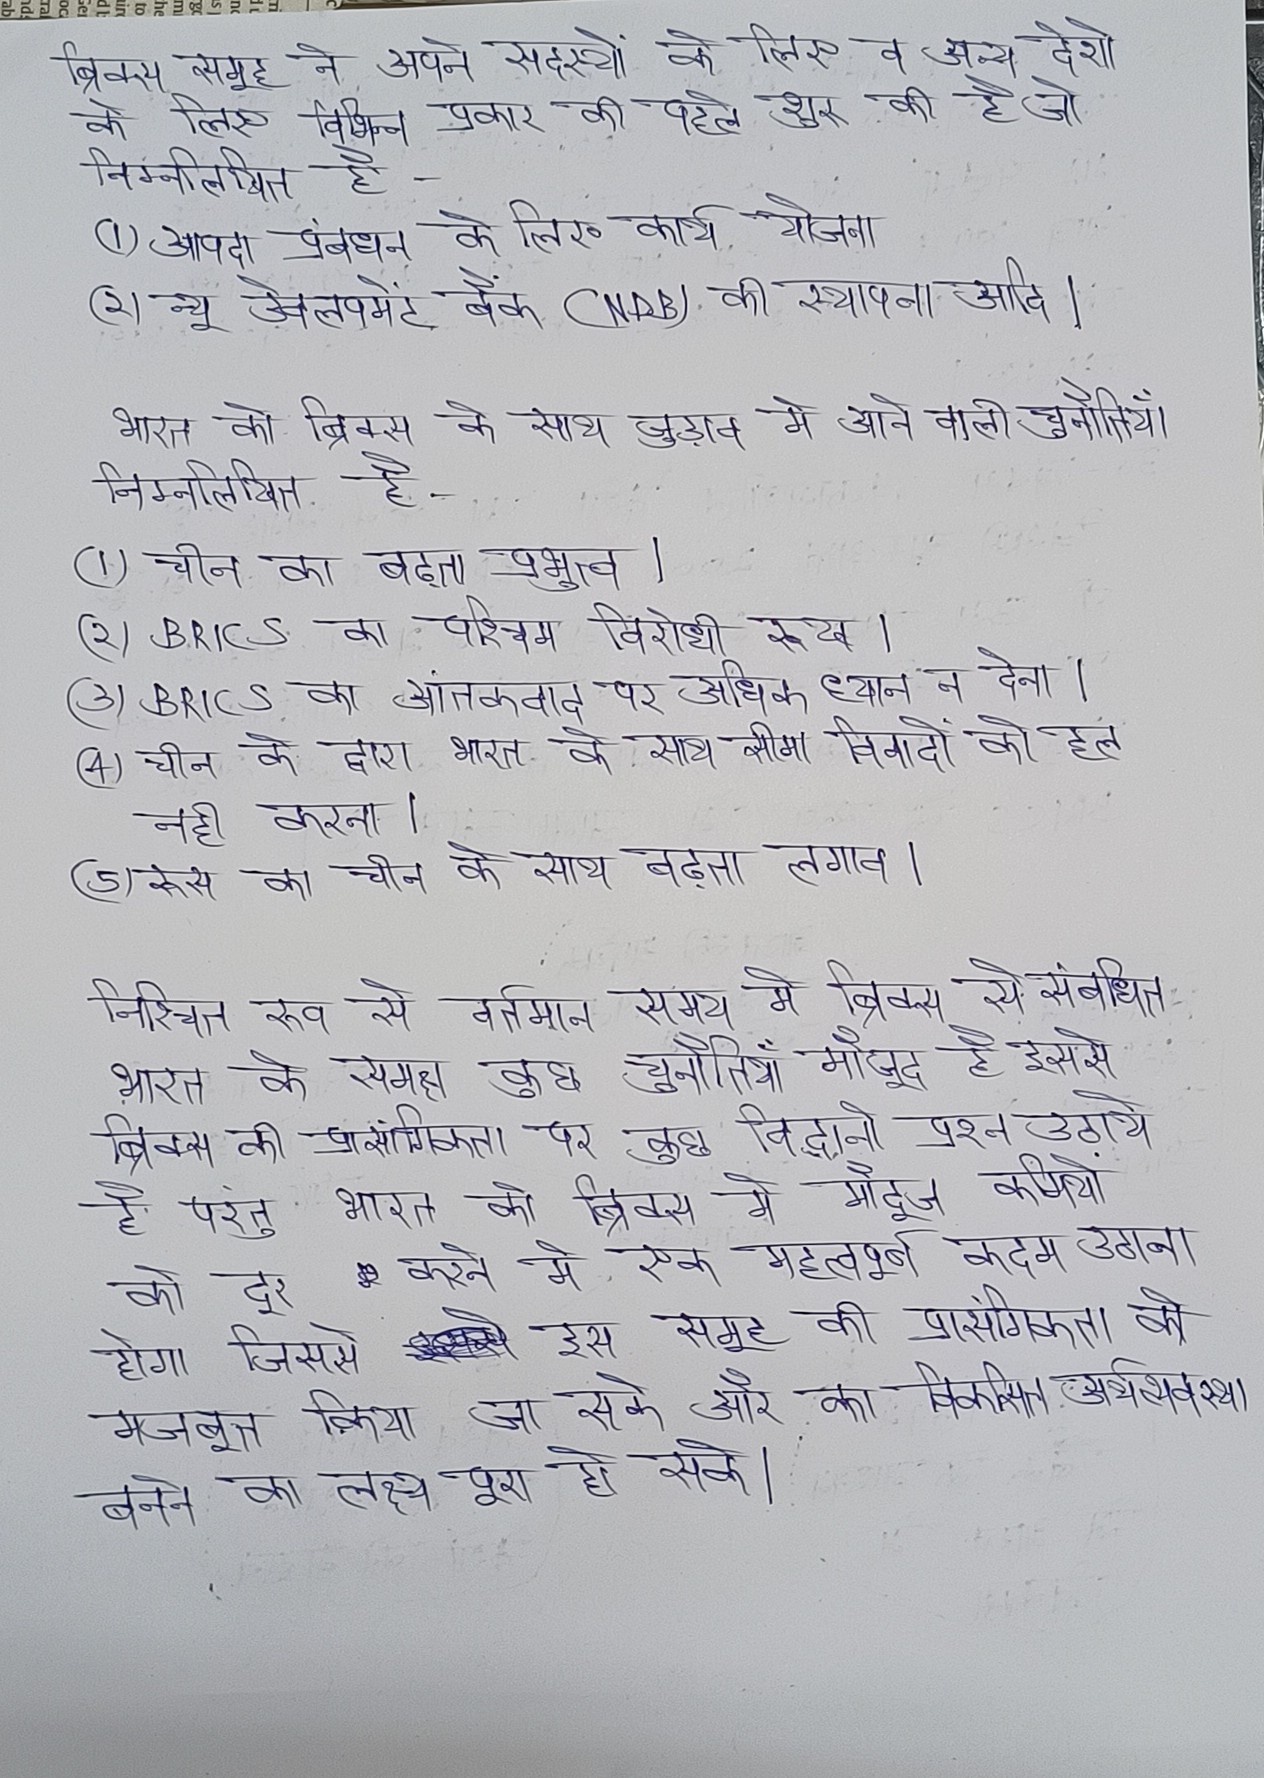 ब्रिक्स समूह ने अपने सदस्यों के लिए व अन्य देशो
के लिए विभिन्न प्रकार की पहले शुरू की है जो
निम्नलिखित है -
(1) आपदा प्रंबधन के लिए कार्य योजना
(२) न्यू डेवलपमेंट बैंक (NDB) की स्थापना आदि |
भारत को ब्रिक्स के साथ जुड़ाव मे आने वाली चुनौतियाँ
निम्नलिखित है -
(1) चीन का बढ़ता प्रभुत्व |
(२) BRICS का पश्चिम विरोधी रूख |
(3) BRICS का आंतकवाद पर अधिक ध्यान न देना |
(4) चीन के द्वारा भारत के साथ सीमा विवादों को हल
नही करना |
(5) रूस का चीन के साथ बढ़ता लगाव |
निश्चित रूप से वर्तमान समय मे ब्रिक्स से संबधित
भारत के समक्ष कुछ चुनौतियाँ मौजूद है इससे
ब्रिक्स की प्रासंगिकता पर कुछ विद्वानो प्रश्न उठाये
है परंतु भारत को ब्रिक्स मे मौदूज कमियों
को दूर करने मे एक महत्वपूर्ण कदम उठाना
होगा जिससे इस समूह की प्रासंगिकता को
मजबूत किया जा सके और का विकसित अर्थव्यवस्था
बनने का लक्ष्य पूरा हो सके |